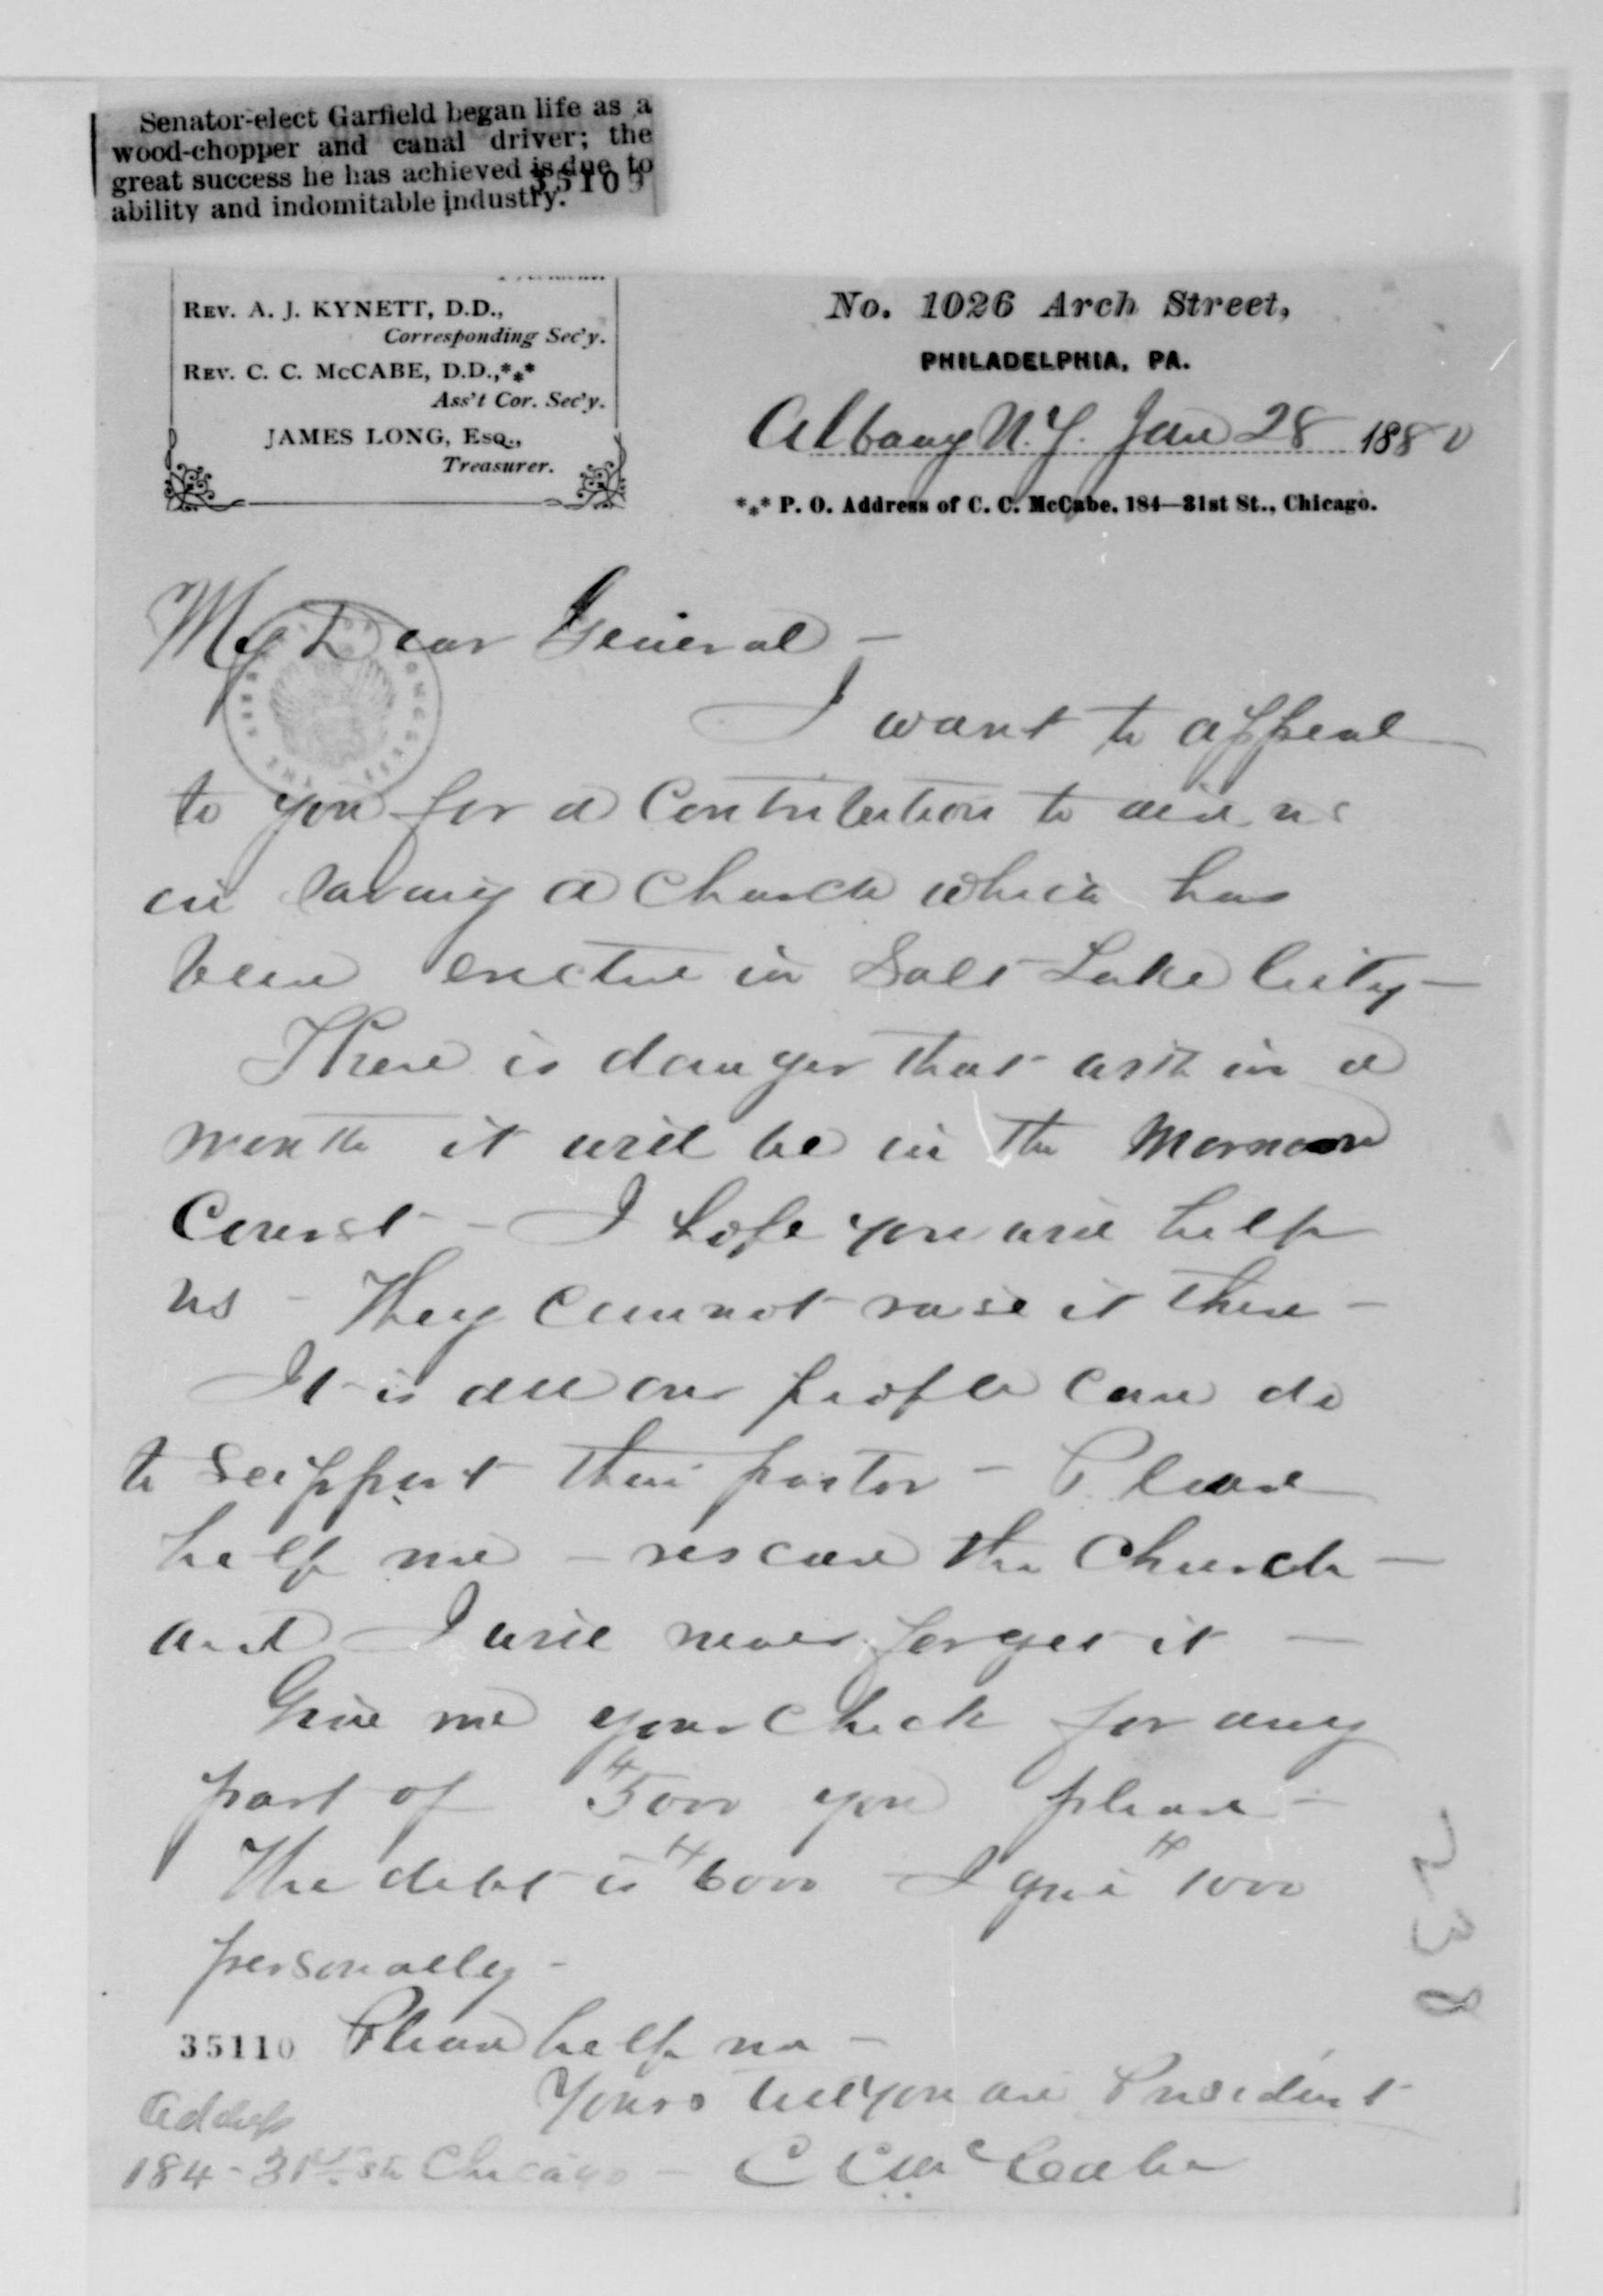 Senator-elect Garfield began life as a
wood-chopper and canal driver; the
great success he has achieved is due to
ability and indomitable industry.
35109
REV. A. J. KYNETT, D.D.,
Corresponding Sec'y.
REV. C. C. McCABE, D.D.,***
Ass't Cor. Sec'y.
JAMES LONG, ESQ.,
Treasurer.
No. 1026 Arch Street,
PHILADELPHIA, PA.
Albany N.Y. Jan 28 1880
*** P. O. Address of C. C. McCabe, 184—31st St., Chicago.
My Dear General –
I want to appeal
to you for a Contribution to aid us
in saving a Church which has
been erected in Salt Lake City –
There is danger that with in a
month it will be in the Mormon
Court – I hope you will help
us – They cannot raise it there –
It is all our people can do
to support their pastor – Please
help me – rescue the Church –
and I will never forget it –
Give me your check for any
part of $5000 you please –
The debt is $6000 I give $1000
personally –
35110 Please help me –
Yours till you are President
C C McCabe
Address
184 – 31st St Chicago –
238